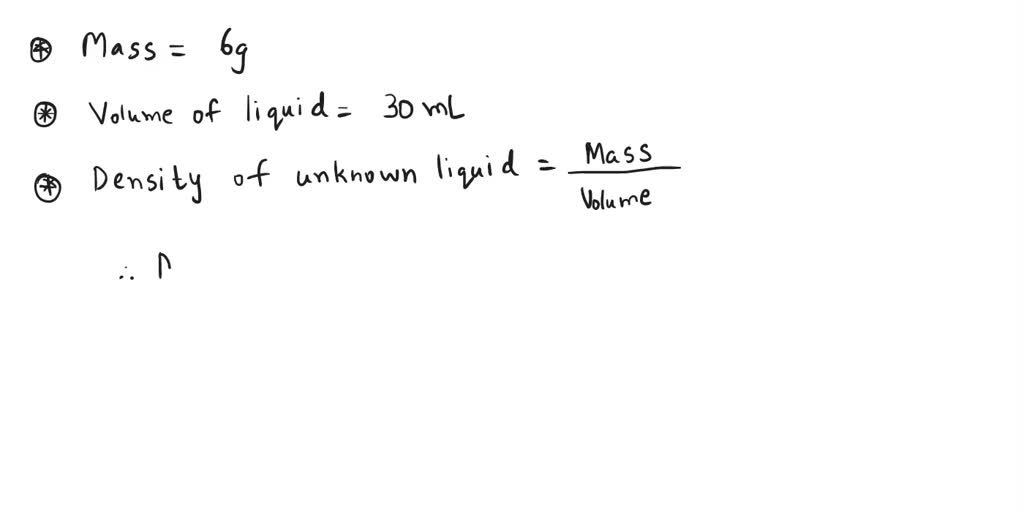 ⊛ Mass = 6g
⊛ Volume of liquid = 30 mL
⊛ Density of unknown liquid = Mass / Volume
∴